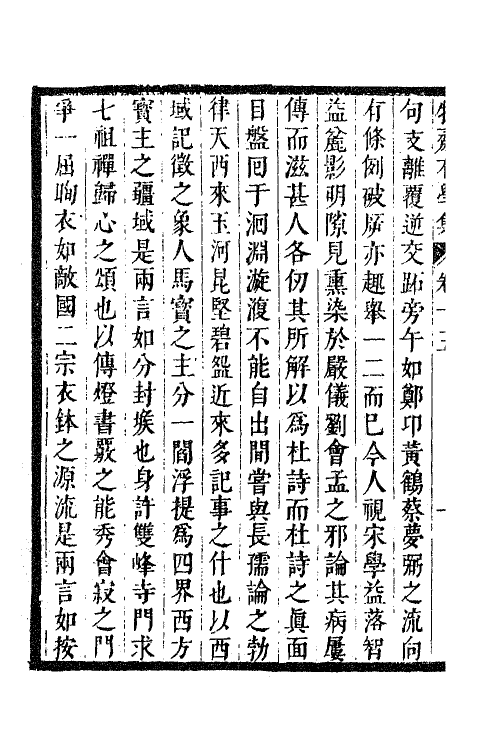 牧齋有學集 卷十五
句支離覆逆交跖旁午如鄭卬黃鶴蔡夢弼之流向
有條例破𤗉亦趣舉一二而巳今人視宋學益落智
益麄影明隙見熏染於嚴儀劉會孟之邪論其病屢
傳而滋甚人各仞其所解以爲杜詩而杜詩之眞面
目盤囘于洄淵漩澓不能自出閒嘗與長孺論之勃
律天西來玉河昆堅碧盌近來多記事之什也以西
域記徵之象人馬寶之主分一閻浮提爲四界西方
寳主之疆域是兩言如分封堠也身許雙峰寺門求
七祖禪歸心之頌也以傳燈書覈之能秀會寂之門
爭一屈眴衣如敵國二宗衣鉢之源流是兩言如按